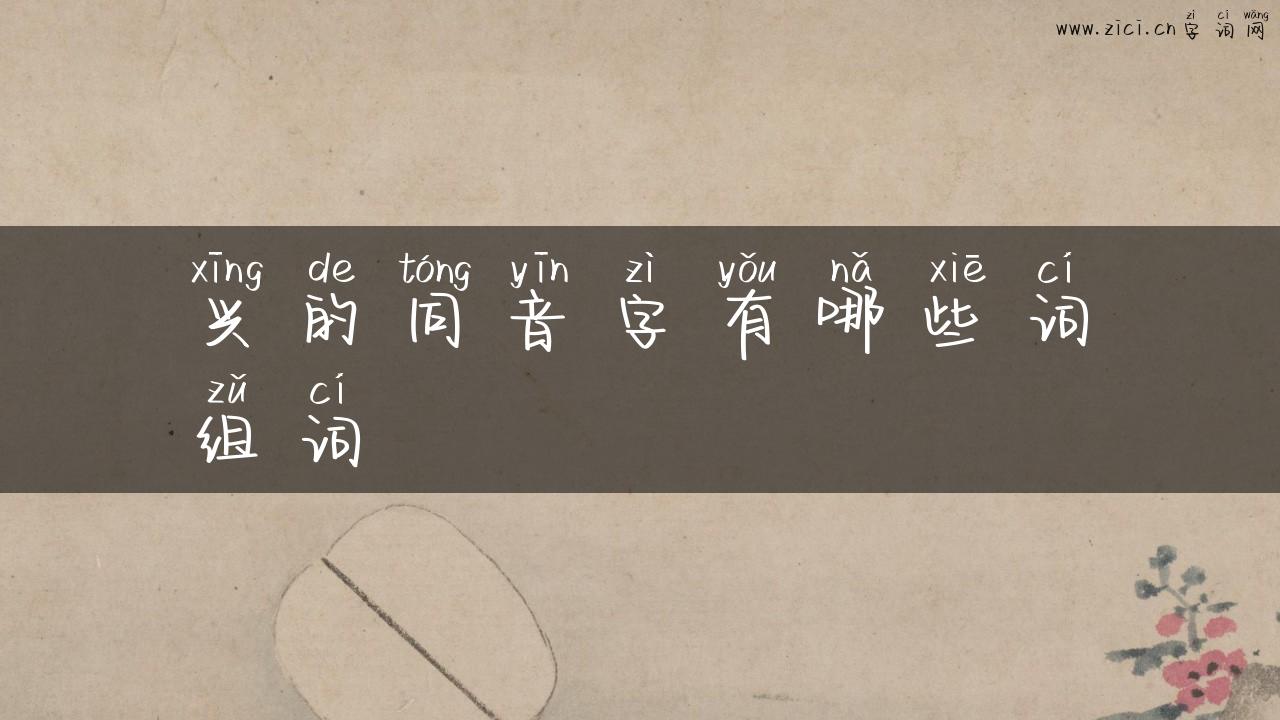 zì cí wǎng
www.zici.cn 字词网
xīng de tóng yīn zì yǒu nǎ xiē cí
兴的同音字有哪些词
zǔ cí
组词